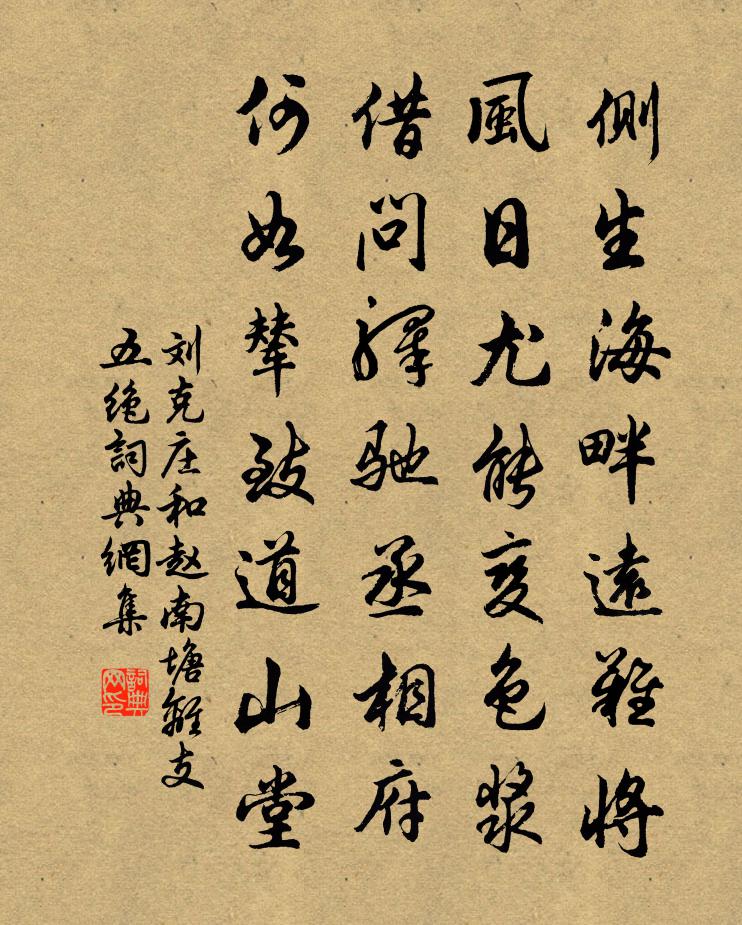 側生海畔遠難將
風日尤能變色漿
借問驛馳丞相府
何如輦致道山堂
刘克庄和赵南塘離支
五绝詞典網集
詞典
网印